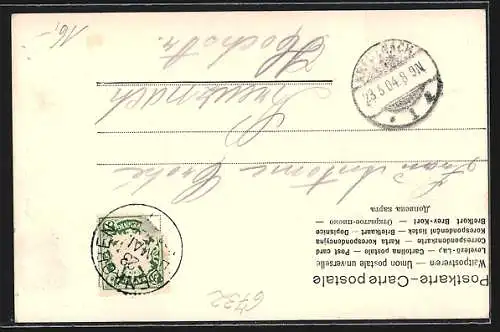 Postkarte–Carte postale
Weltpostverein — Union postale universelle
Levelező-Lap — Cartolina postale — Post card
Correspondenzkarte — Karta korespondencyjna
Korespondenční lístek — Briefkaart — Dopisnica
Brefkort — Brev-Kort — Открытое письмо
Дописна карта
Frau Antonie
Kreuznach
KREUZNACH
23.5.04.8-9N.
* 1
23
MAI
6732
16,-